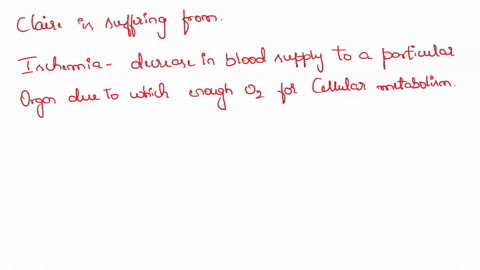 Claire is suffring from.
Ischemia - decrease in blood supply to a particular
Organ due to which enough O2 for Cellular metabolism.